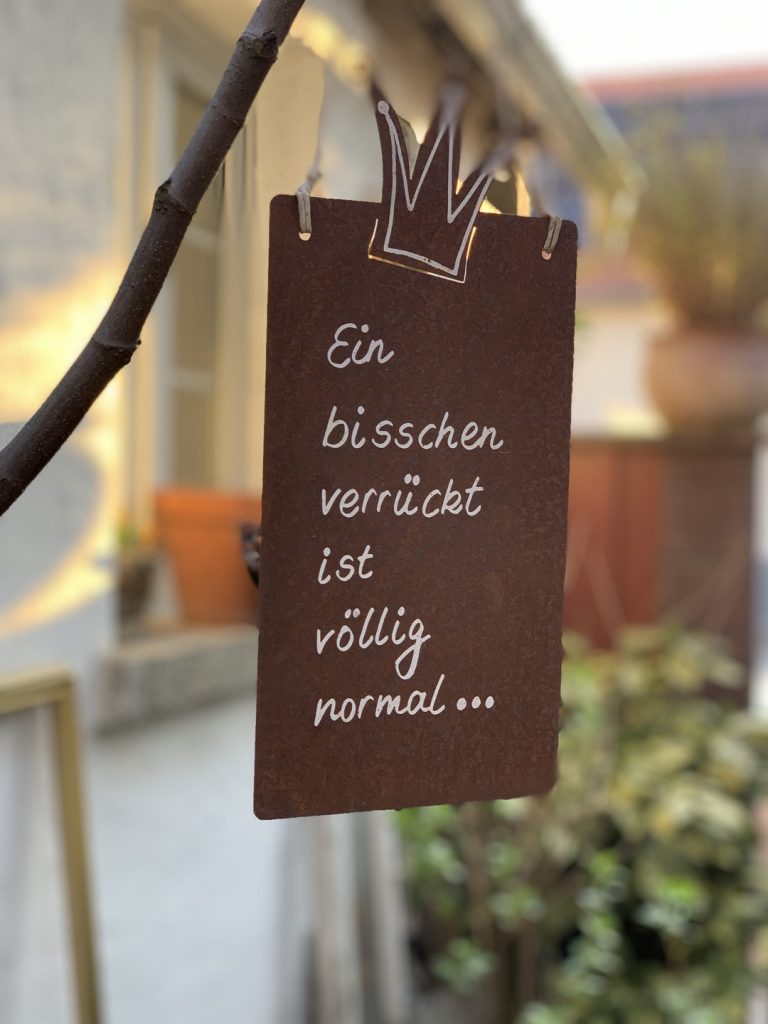 Ein
bisschen
verrückt
ist
völlig
normal...